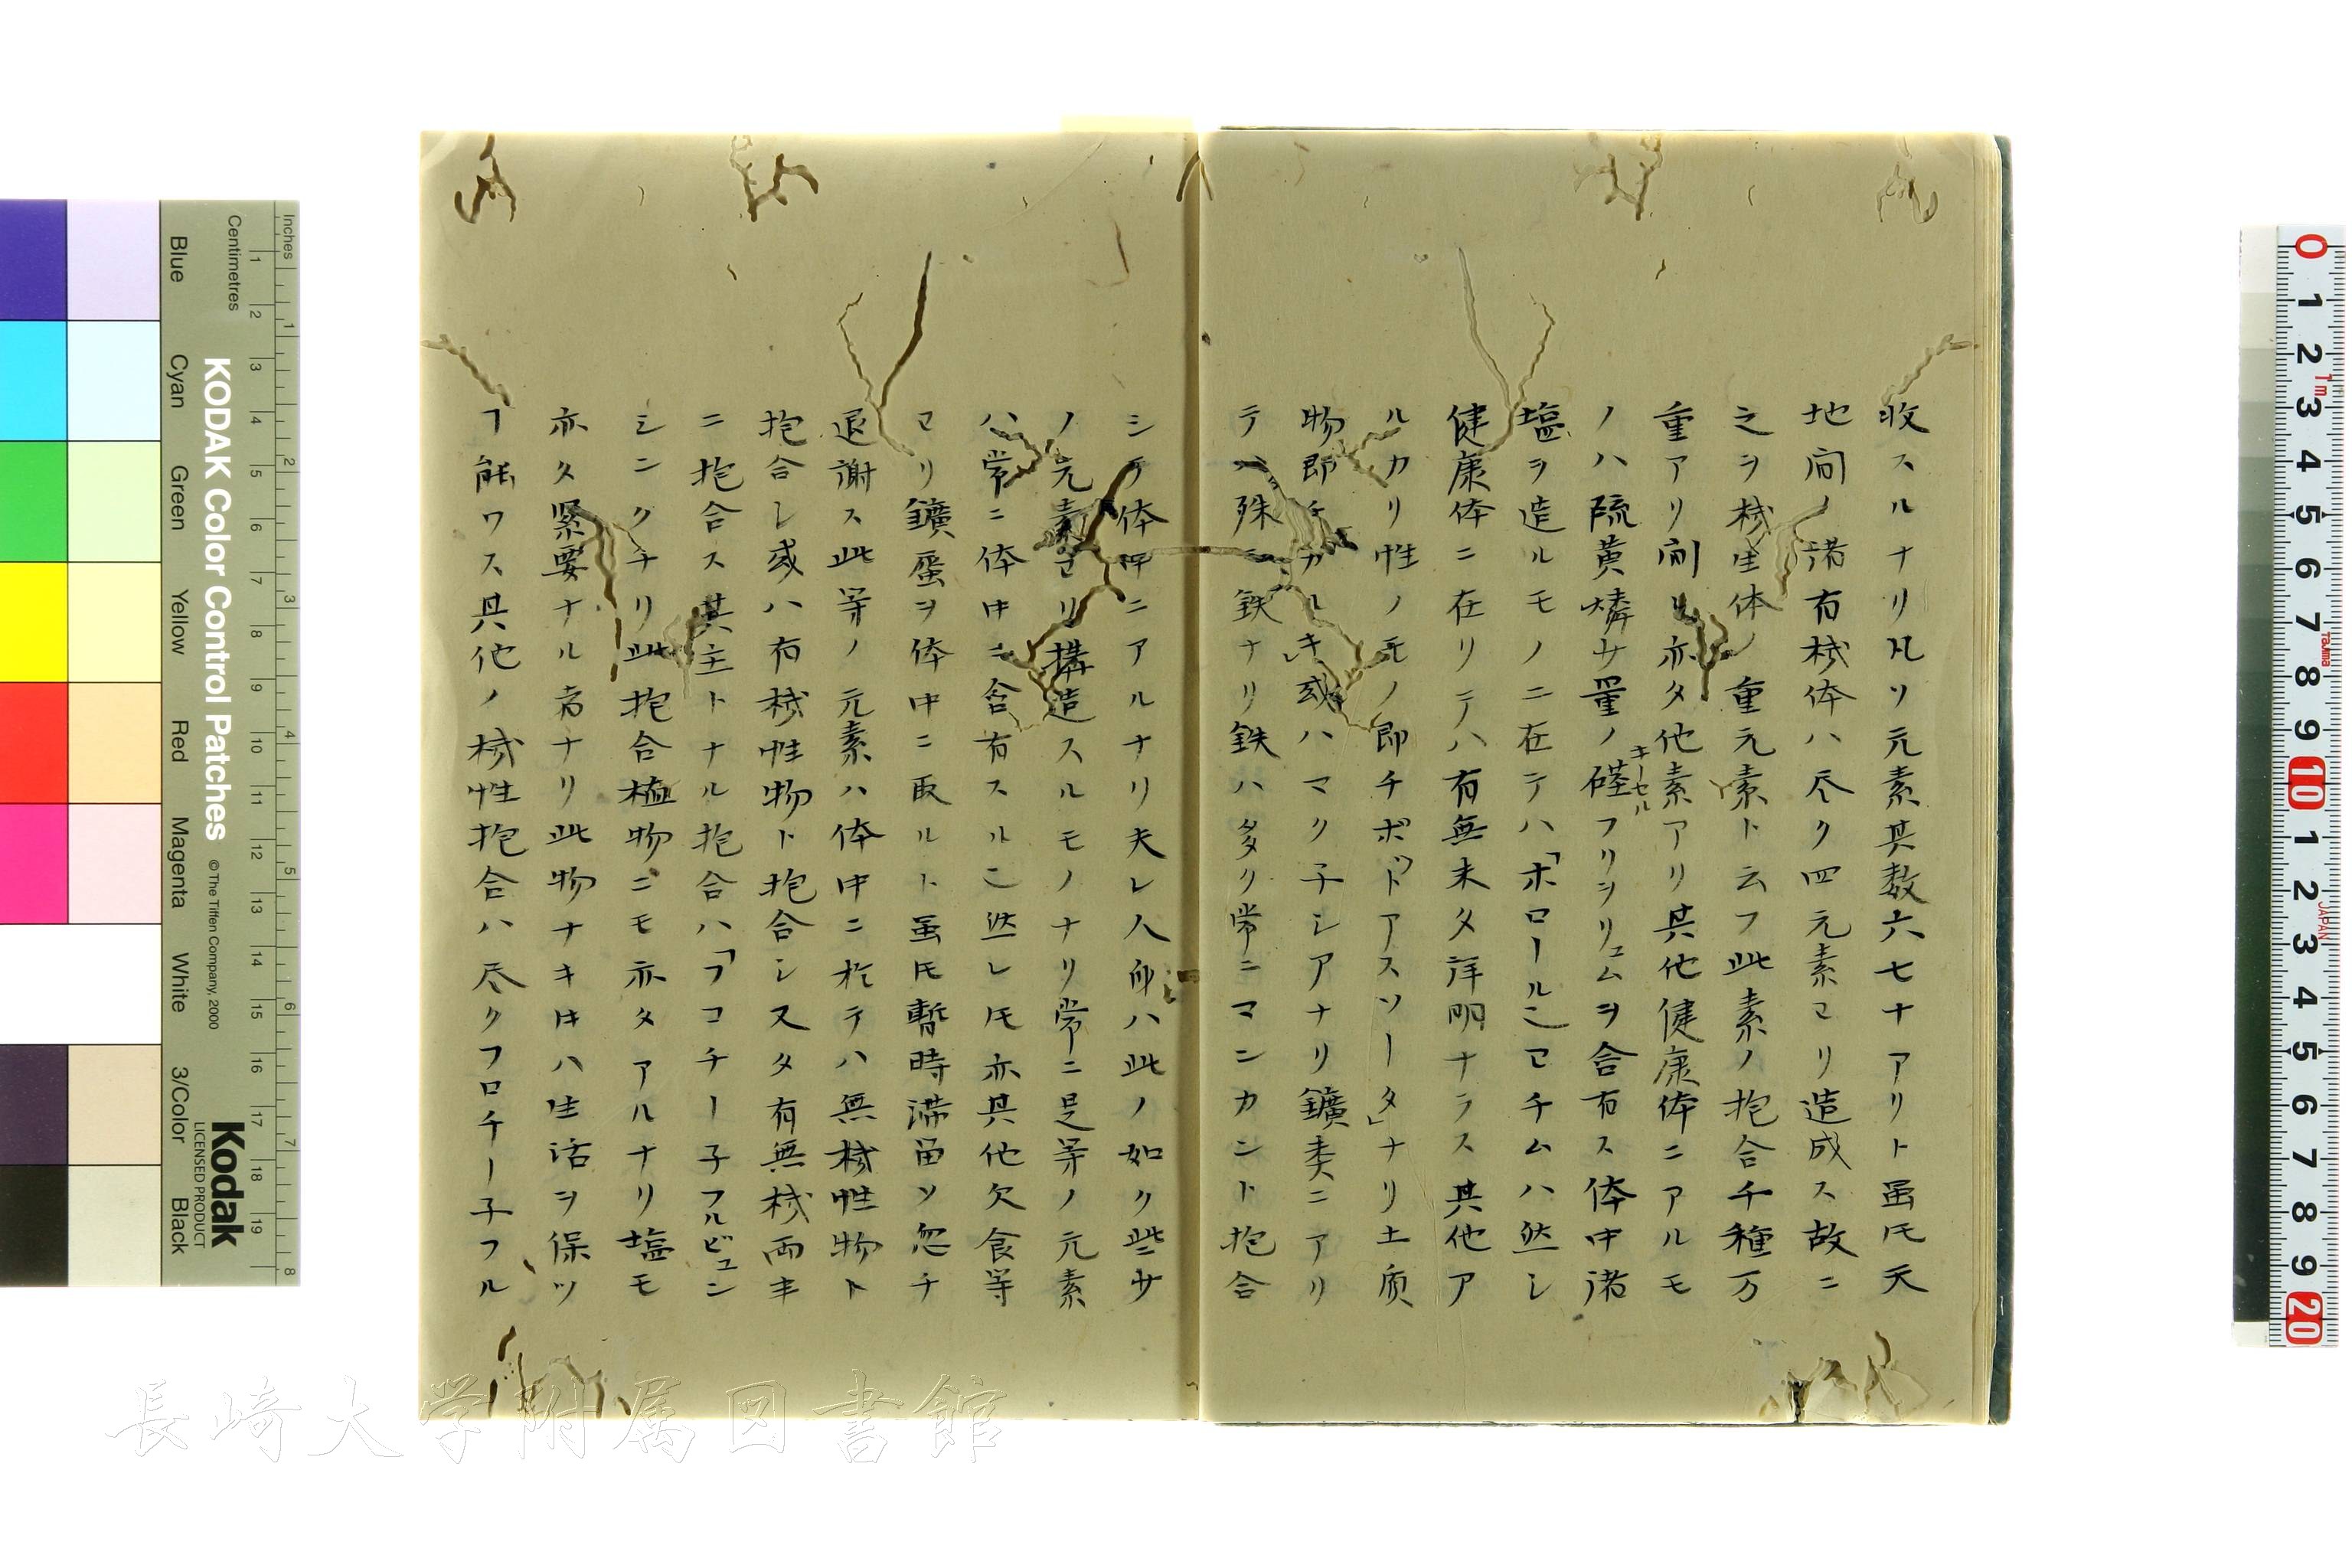 收スルナリ凡ソ元素其数六七十アリト雖𪜈天
地间ノ諸有機体ハ尽ク四元素ヨリ造成ス故ニ
之ヲ機生体ノ重元素ト云フ此素ノ抱合千種万
重アリ间亦タ他素アリ其他健康体ニアルモ
ノハ硫黄燐サ量ノ礶フリヲリュムヲ合有ス体中諸
キーセル
塩ヲ造ルモノニ在テハ「ホロールニヨチムハ然シ
健康体ニ在リテハ有無未タ詳明ナラス其他ア
ルカリ性ノモノ即チボッドアスソータ」ナリ土质
物即チカルキ或ハマク子シアナリ鑛类ニアリ
テハ殊ニ鉄ナリ鉄ハ多ク常ニマンカント抱合
シテ体中ニアルナリ夫レ人身ハ此ノ如ク些サ
ノ元素ヨリ搆造スルモノナリ常ニ是等ノ元素
ハ常ニ体中ニ含有スルヿ然レ𪜈亦其他欠食等
ヨリ鑛壓ヲ体中ニ取ルト雖𪜈暫時滞畄ソ忽チ
退謝ス此等ノ元素ハ体中ニ於テハ無機性物ト
抱合シ或ハ有機性物ト抱合シ又タ有無機両半
ニ抱合ス其主トナル抱合ハ「フコチー子フルビュン
シンクナリ此抱合植物ニモ亦タアルナリ塩モ
亦タ緊要ナル者ナリ此物ナキ𪜈ハ生活ヲ保ツ
ヿ能ワス其他ノ機性抱合ハ尽クフロチー子フル
KODAK Color Control Patches
© The Tiffen Company, 2000
Kodak
LICENSED PRODUCT
Inches
Centimetres
Blue
Cyan
Green
Yellow
Red
Magenta
White
3/Color
Black
長崎大学附属図書館